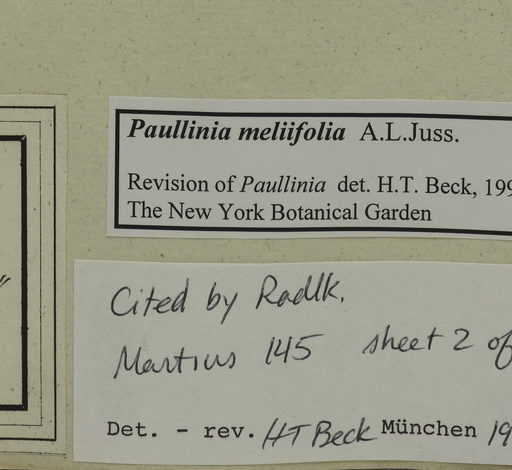 Paullinia meliifolia A.L.Juss.
Revision of Paullinia det. H.T. Beck, 199
The New York Botanical Garden
Cited by Radlk.
Martius 145 sheet 2 of
Det. - rev. HT Beck München 19